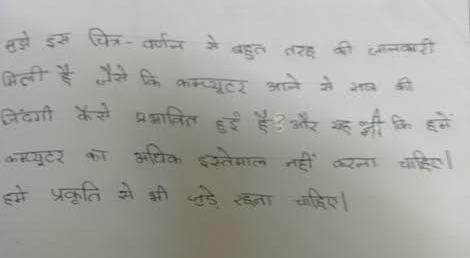 मुझे इस चित्र-वर्णन से बहुत तरह की जानकारी
मिली है जैसे कि कम्प्यूटर आने से सब की
जिंदगी कैसे प्रभावित हुई है? और यह भी कि हमें
कम्प्यूटर का अधिक इस्तेमाल नहीं करना चाहिए।
हमे प्रकृति से भी जुड़े रहना चाहिए।